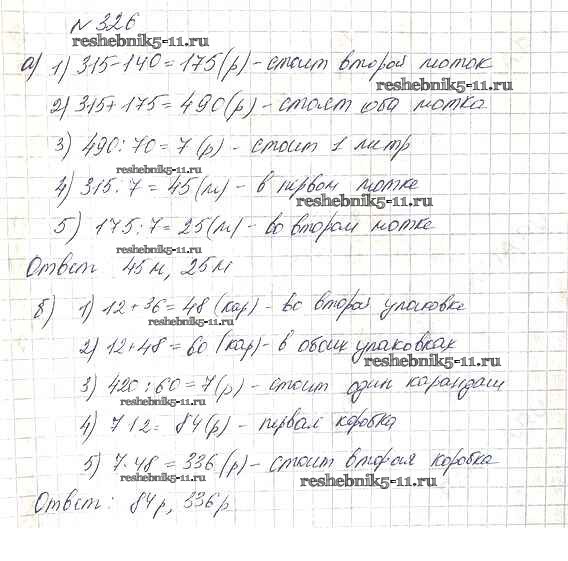 № 326
reshebnik5-11.ru
а) 1) 315-140=175(р)-стоит второй моток
reshebnik5-11.ru
2) 315+175=490(р)-стоят оба мотка
3) 490:70=7(р)- стоит 1 литр
reshebnik5-11.ru
4) 315:7=45(м)- в первом мотке
reshebnik5-11.ru
5) 175:7=25(м)- во втором мотке
reshebnik5-11.ru
Ответ: 45м, 25м
б) 1) 12+36=48(кар)- во второй упаковке
reshebnik5-11.ru
2) 12+48=60(кар)- в обоих упаковках
reshebnik5-11.ru
3) 420:60=7(р)- стоит один карандаш
reshebnik5-11.ru
4) 7·12= 84(р)- первая коробка
5) 7·48=336(р)- стоит вторая коробка
reshebnik5-11.ru
Ответ: 84р, 336р